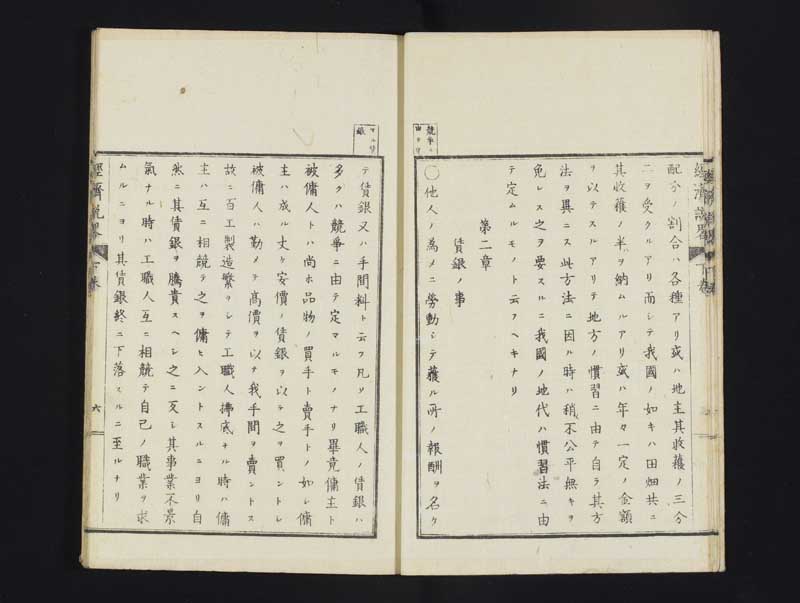 競争ニ
由ヲリ
配分ノ割合ハ各種アリ或ハ地主其收穫ノ三分
二ヲ受クルアリ而シテ我國ノ如キハ田畑共ニ
其收穫ノ半ヲ納ムルアリ或ハ年々一定ノ金額
ヲ以テスルアリテ地方ノ慣習ニ由テ自ラ其方
法ヲ異ニス此方法ニ因ル時ハ稍不公平無キヲ
免レス之ヲ要スルニ我國ノ地代ハ慣習法ニ由
テ定ムルモノト云フヘキナリ
第二章
賃銀ノ事
〇他人ノ為メニ勞動シテ獲ル所ノ報酬ヲ名ケ
テ賃銀又ハ手間料ト云フ凡ソ工職人ノ賃銀ハ
多クハ競爭ニ由テ定マルモノナリ畢竟傭主ト
被傭人トハ尚ホ品物ノ買手ト賣手トノ如シ傭
主ハ成ル丈ケ安價ノ賃銀ヲ以テ之ヲ買ントシ
被傭人ハ勤メテ高價ヲ以テ我手間ヲ賣ントス
故ニ百工製造繁ヲシテ工職人拂底ナル時ハ傭
主ハ互ニ相競テ之ヲ傭ヒ入ントスルニヨリ自
然ニ其賃銀ヲ騰貴スヘシ之ニ反シ其事業不景
氣ナル時ハ工職人互ニ相競テ自己ノ職業ヲ求
ムルニヨリ其賃銀終ニ下落スルニ至ルナリ
經濟說畧
下卷
六